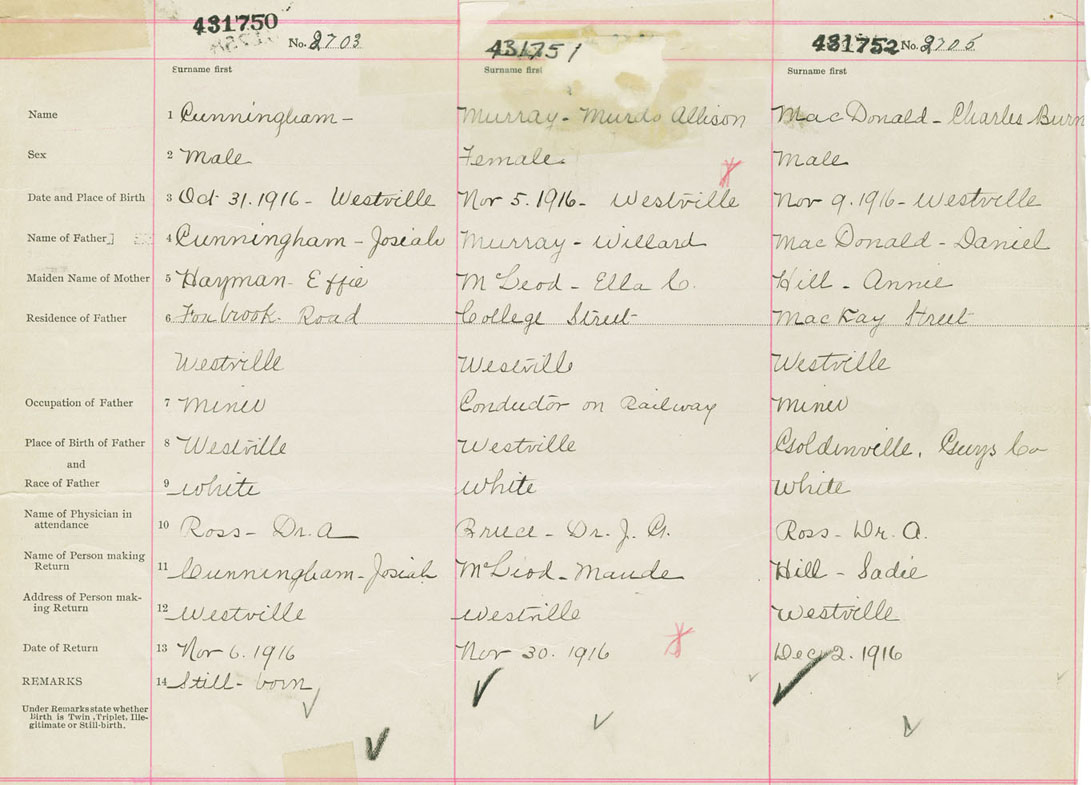 431750 431751 431752
No. 2703 No. 2705
Surname first Surname first Surname first
Name 1 Cunningham - Murray - Murdo Allison MacDonald - Charles Burn
Sex 2 Male Female Male
Date and Place of Birth 3 Oct 31. 1916 - Westville Nov 5. 1916 - Westville Nov 9. 1916 - Westville
Name of Father 4 Cunningham - Josiah Murray - Willard MacDonald - Daniel
Maiden Name of Mother 5 Hayman - Effie McLeod - Ella C. Hill - Annie
Residence of Father 6 Foxbrook Road College Street MacKay Street
Westville Westville Westville
Occupation of Father 7 Miner Conductor on Railway Miner
Place of Birth of Father 8 Westville Westville Goldenville, Guys Co
and
Race of Father 9 White White White
Name of Physician in
attendance 10 Ross - Dr. A Bruce - Dr. J. G. Ross - Dr. A.
Name of Person making
Return 11 Cunningham - Josiah McLeod - Maude Hill - Sadie
Address of Person mak-
ing Return 12 Westville Westville Westville
Date of Return 13 Nov 6. 1916 Nov 30. 1916 Dec 2. 1916
REMARKS 14 Still-born
Under Remarks state whether
Birth is Twin, Triplet, Ille-
gitimate or Still-birth.